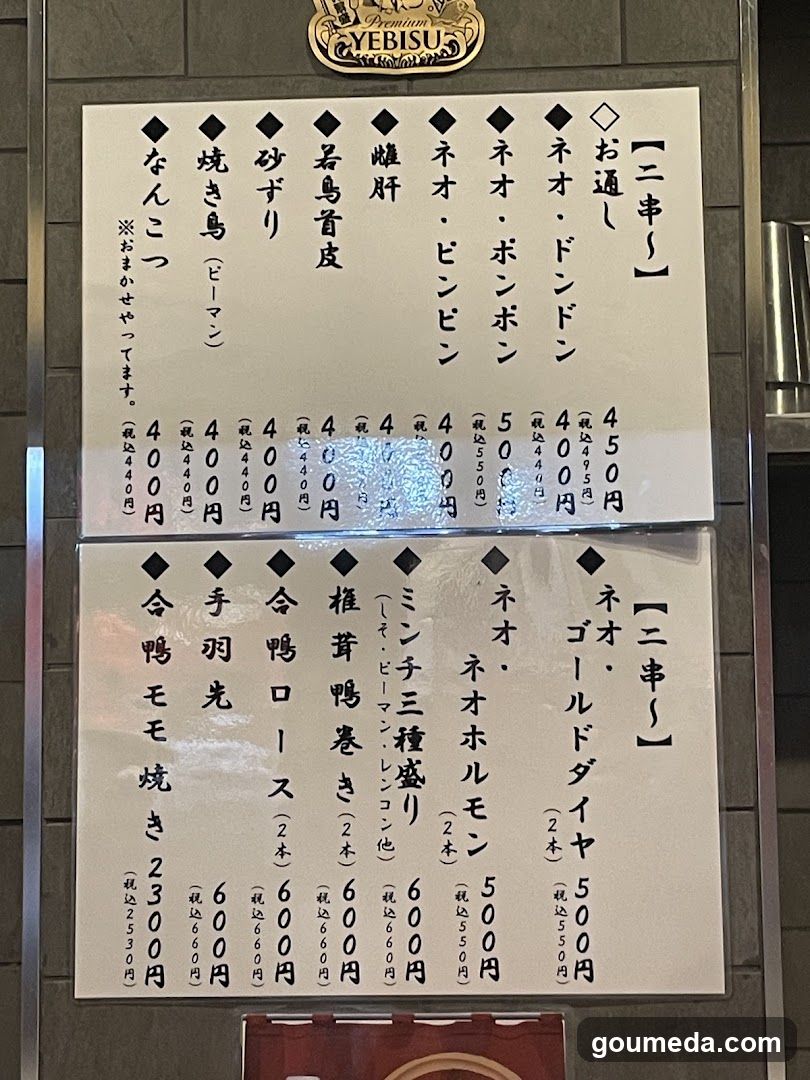 Premium
YEBISU
【二串〜】
◇お通し 450円
(税込495円)
◆ネオ・ドンドン 400円
(税込440円)
◆ネオ・ポンポン 500円
(税込550円)
◆ネオ・ピンピン 400円
◆雌肝 400円
◆若鳥首皮 400円
(税込440円)
◆砂ずり 400円
(税込440円)
◆焼き鳥(ピーマン) 400円
(税込440円)
◆なんこつ 400円
(税込440円)
※おまかせやってます。
【二串〜】
◆ネオ・
ゴールドダイヤ 500円
(2本) (税込550円)
◆ネオ・
ネオホルモン 500円
(2本) (税込550円)
◆ミンチ三種盛り 600円
(しそ・ピーマン・レンコン他) (税込660円)
◆椎茸鴨巻き(2本) 600円
(税込660円)
◆合鴨ロース(2本) 600円
(税込660円)
◆手羽先 600円
(税込660円)
◆合鴨モモ焼き 2300円
(税込2530円)
goumeda.com